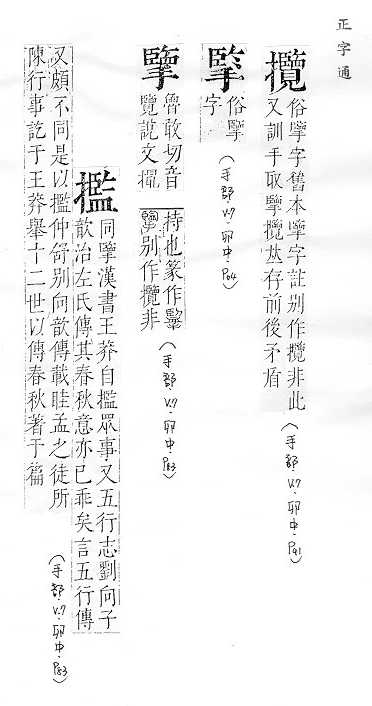 正字通
攬
俗擥字舊本擥字註别作攬非此
又訓手取擥攬𠀤存前後矛盾
(手部.V.7.卯中.P.91)
俗擥
字
(手部.V.7.卯中.P64)
擥
魯敢切音
覽說文撮
持也篆作擥
别作攬非
(手部.V.7.卯中.P83)
㩜
同擥漢書王莽自㩜眾事又五行志劉向子
歆治左氏傳其春秋意亦已乖矣言五行傳
又頗不同是以㩜仲舒别向歆傳載眭孟之徒所
陳行事訖于王莽舉十二世以傳春秋著于篇
(手部.V.7.卯中.P83)